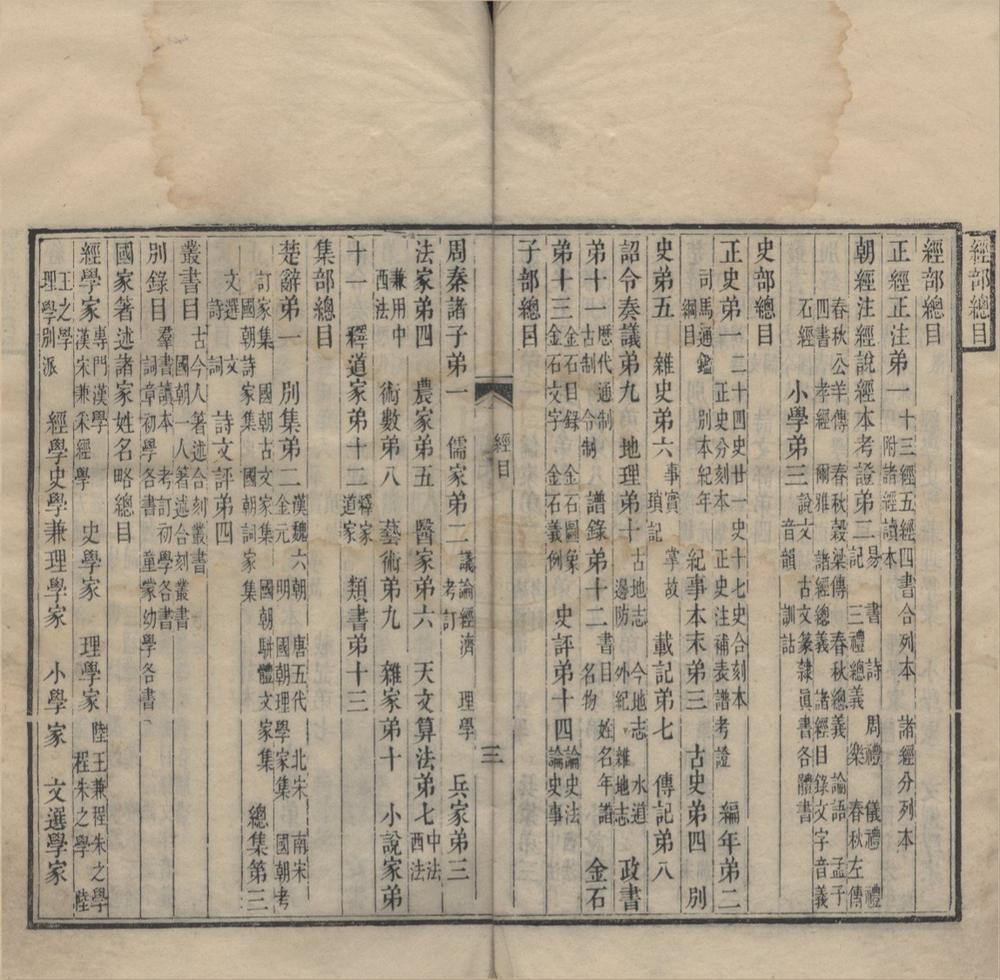 經部總目
經部總目
正經正注弟一 十三經五經四書合列本 諸經分列本 附諸經讀本
朝經注經說經本考證弟二 易 書 詩 周禮 儀禮 禮記 三禮總義 樂 春秋左傳
春秋公羊傳 春秋穀梁傳 春秋總義 論語 孟子 四書 孝經 爾雅 諸經總義 諸經目錄文字音義
石經 小學弟三 說文 古文篆隸眞書各體書 音韻 訓詁
史部總目
正史弟一 二十四史廿一史十七史合刻本 正史分刻本 正史注補表譜考證 編年弟二
司馬通鑑 別本紀年 綱目 紀事本末弟三 古史弟四 別
史弟五 雜史弟六 事實 掌故 瑣記 載記弟七 傳記弟八
詔令奏議弟九 地理弟十 古地志 今地志 水道 邊防 外紀 雜地志 政書
弟十一 歷代通制 古制 今制 譜錄弟十二 書目 姓名年譜 名物 金石
弟十三 金石目錄 金石圖象 金石文字 金石義例 史評弟十四 論史法 論史事
子部總目
經目
三
周秦諸子弟一 儒家弟二 議論經濟 理學 考訂 兵家弟三
法家弟四 農家弟五 醫家弟六 天文算法弟七 中法 西法
兼用中西法 術數弟八 藝術弟九 雜家弟十 小說家弟
十一 釋道家弟十二 釋家 道家 類書弟十三
集部總目
楚辭弟一 別集弟二 漢魏六朝 唐五代 北宋 南宋 金元 明 國朝理學家集 國朝考
訂家集 國朝古文家集 國朝駢體文家集 國朝詩家集 國朝詞家集 總集第三
文選 文 詩 詞 詩文評弟四
叢書目 古今人著述合刻叢書 國朝一人著述合刻叢書
別錄目 羣書讀本 考訂初學各書 詞章初學各書 童蒙幼學各書
國家著述諸家姓名略總目
經學家 專門漢學 漢宋兼釆經學 史學家 理學家 陸王兼程朱之學 程朱之學 陸
王之學 理學別派 經學史學兼理學家 小學家 文選學家